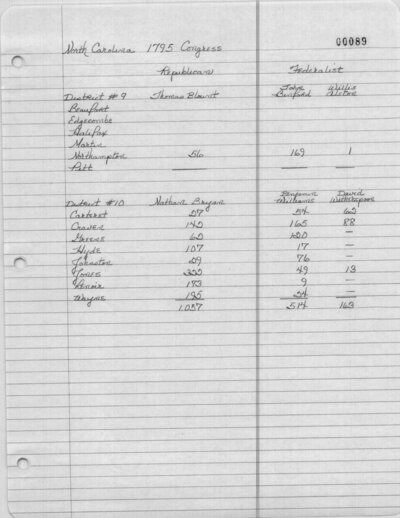 00089
North Carolina 1795 Congress
Republican Federalist
District #9 Thomas Blount John Binford Willis Alston
Beaufort
Edgecombe
Halifax
Martin
Northampton 56 169 1
Pitt
District #10 Nathan Bryan Benjamin Williams David Witherspoon
Carteret 27 54 62
Craven 142 165 88
Greene 62 120 —
Hyde 107 17 —
Johnston 29 76 —
Jones 322 49 13
Lenoir 173 9 —
Wayne 195 24 —
1,057 514 163